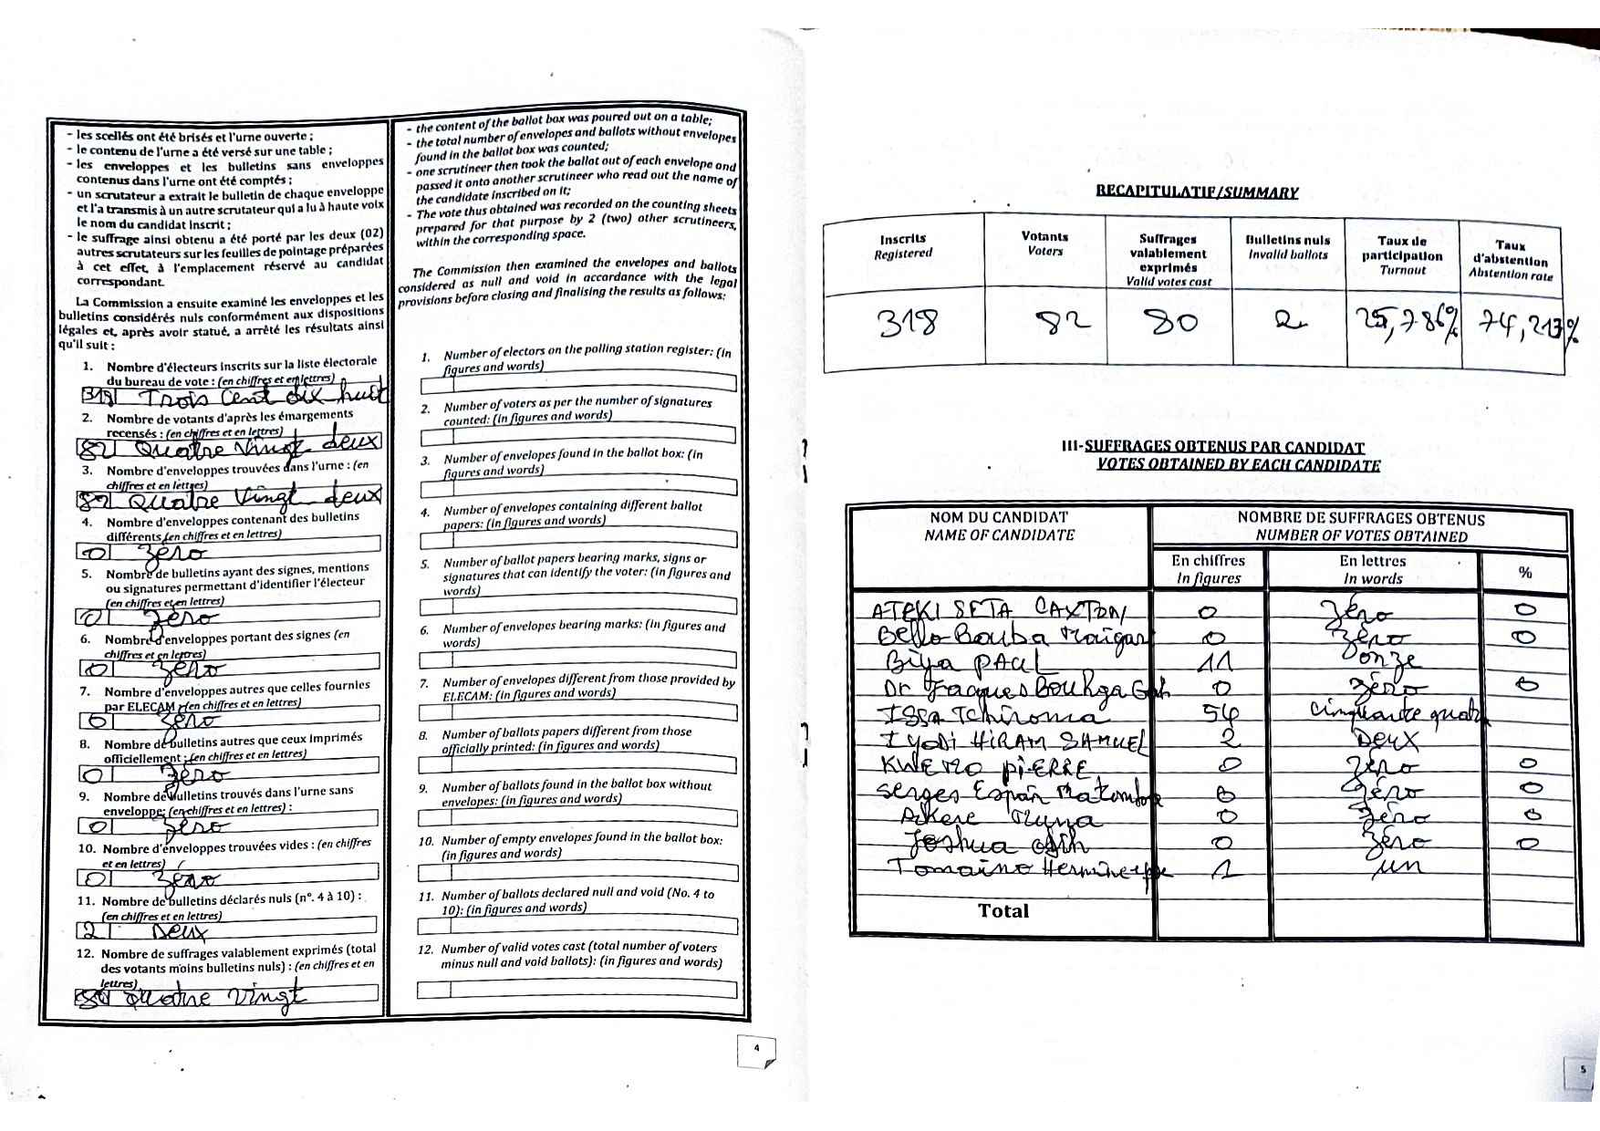 - les scellés ont été brisés et l'urne ouverte ;
- le contenu de l'urne a été versé sur une table ;
- les enveloppes et les bulletins sans enveloppes
contenus dans l'urne ont été comptés ;
- un scrutateur a extrait le bulletin de chaque enveloppe
et l'a transmis à un autre scrutateur qui a lu à haute voix
le nom du candidat inscrit ;
- le suffrage ainsi obtenu a été porté par les deux (02)
autres scrutateurs sur les feuilles de pointage préparées
à cet effet, à l'emplacement réservé au candidat
correspondant.
La Commission a ensuite examiné les enveloppes et les
bulletins considérés nuls conformément aux dispositions
légales et, après avoir statué, a arrêté les résultats ainsi
qu'il suit :
1. Nombre d'électeurs inscrits sur la liste électorale
du bureau de vote : (en chiffres et en lettres)
318 Trois Cent dix huit
2. Nombre de votants d'après les émargements
recensés : (en chiffres et en lettres)
82 Quatre Vingt deux
3. Nombre d'enveloppes trouvées dans l'urne : (en
chiffres et en lettres)
82 Quatre Vingt deux
4. Nombre d'enveloppes contenant des bulletins
différents (en chiffres et en lettres)
0 Zéro
5. Nombre de bulletins ayant des signes, mentions
ou signatures permettant d'identifier l'électeur
(en chiffres et en lettres)
0 Zéro
6. Nombre d'enveloppes portant des signes (en
chiffres et en lettres)
0 Zéro
7. Nombre d'enveloppes autres que celles fournies
par ELECAM : (en chiffres et en lettres)
0 Zéro
8. Nombre de bulletins autres que ceux imprimés
officiellement : (en chiffres et en lettres)
0 Zéro
9. Nombre de bulletins trouvés dans l'urne sans
enveloppe: (en chiffres et en lettres) :
0 Zéro
10. Nombre d'enveloppes trouvées vides : (en chiffres
et en lettres)
0 Zéro
11. Nombre de bulletins déclarés nuls (n°. 4 à 10) :
(en chiffres et en lettres)
2 Deux
12. Nombre de suffrages valablement exprimés (total
des votants moins bulletins nuls) : (en chiffres et en
lettres)
80 Quatre Vingt
- the content of the ballot box was poured out on a table;
- the total number of envelopes and ballots without envelopes
found in the ballot box was counted;
- one scrutineer then took the ballot out of each envelope and
passed it onto another scrutineer who read out the name of
the candidate inscribed on it;
- The vote thus obtained was recorded on the counting sheets
prepared for that purpose by 2 (two) other scrutineers,
within the corresponding space.
The Commission then examined the envelopes and ballots
considered as null and void in accordance with the legal
provisions before closing and finalising the results as follows:
1. Number of electors on the polling station register: (in
figures and words)
2. Number of voters as per the number of signatures
counted: (in figures and words)
3. Number of envelopes found in the ballot box: (in
figures and words)
4. Number of envelopes containing different ballot
papers: (in figures and words)
5. Number of ballot papers bearing marks, signs or
signatures that can identify the voter: (in figures and
words)
6. Number of envelopes bearing marks: (in figures and
words)
7. Number of envelopes different from those provided by
ELECAM: (in figures and words)
8. Number of ballots papers different from those
officially printed: (in figures and words)
9. Number of ballots found in the ballot box without
envelopes: (in figures and words)
10. Number of empty envelopes found in the ballot box:
(in figures and words)
11. Number of ballots declared null and void (No. 4 to
10): (in figures and words)
12. Number of valid votes cast (total number of voters
minus null and void ballots): (in figures and words)
4
RECAPITULATIF/SUMMARY
Inscrits Registered
Votants Voters
Suffrages valablement exprimés Valid votes cast
Bulletins nuls Invalid ballots
Taux de participation Turnout
Taux d'abstention Abstention rate
318 82 80 2 25,786% 74,213%
III-SUFFRAGES OBTENUS PAR CANDIDAT
VOTES OBTAINED BY EACH CANDIDATE
NOM DU CANDIDAT NOMBRE DE SUFFRAGES OBTENUS
NAME OF CANDIDATE NUMBER OF VOTES OBTAINED
En chiffres En lettres %
In figures In words
ATEKI SETA CAXTON 0 Zéro 0
Bello Bouba Maigari 0 Zéro 0
Biya PAUL 11 onze
Dr Jacques Bouhga 0 Zéro 0
ISSA Tchiroma 54 Cinquante quatre
IYODI HIRAM SAMUEL 2 Deux
KWEMO PIERRE 0 Zéro 0
Serges Espoir Matomba 0 Zéro 0
Akere Muna 0 Zéro 0
Joshua Osih 0 Zéro 0
Tomaino Hermine 1 un
Total
5